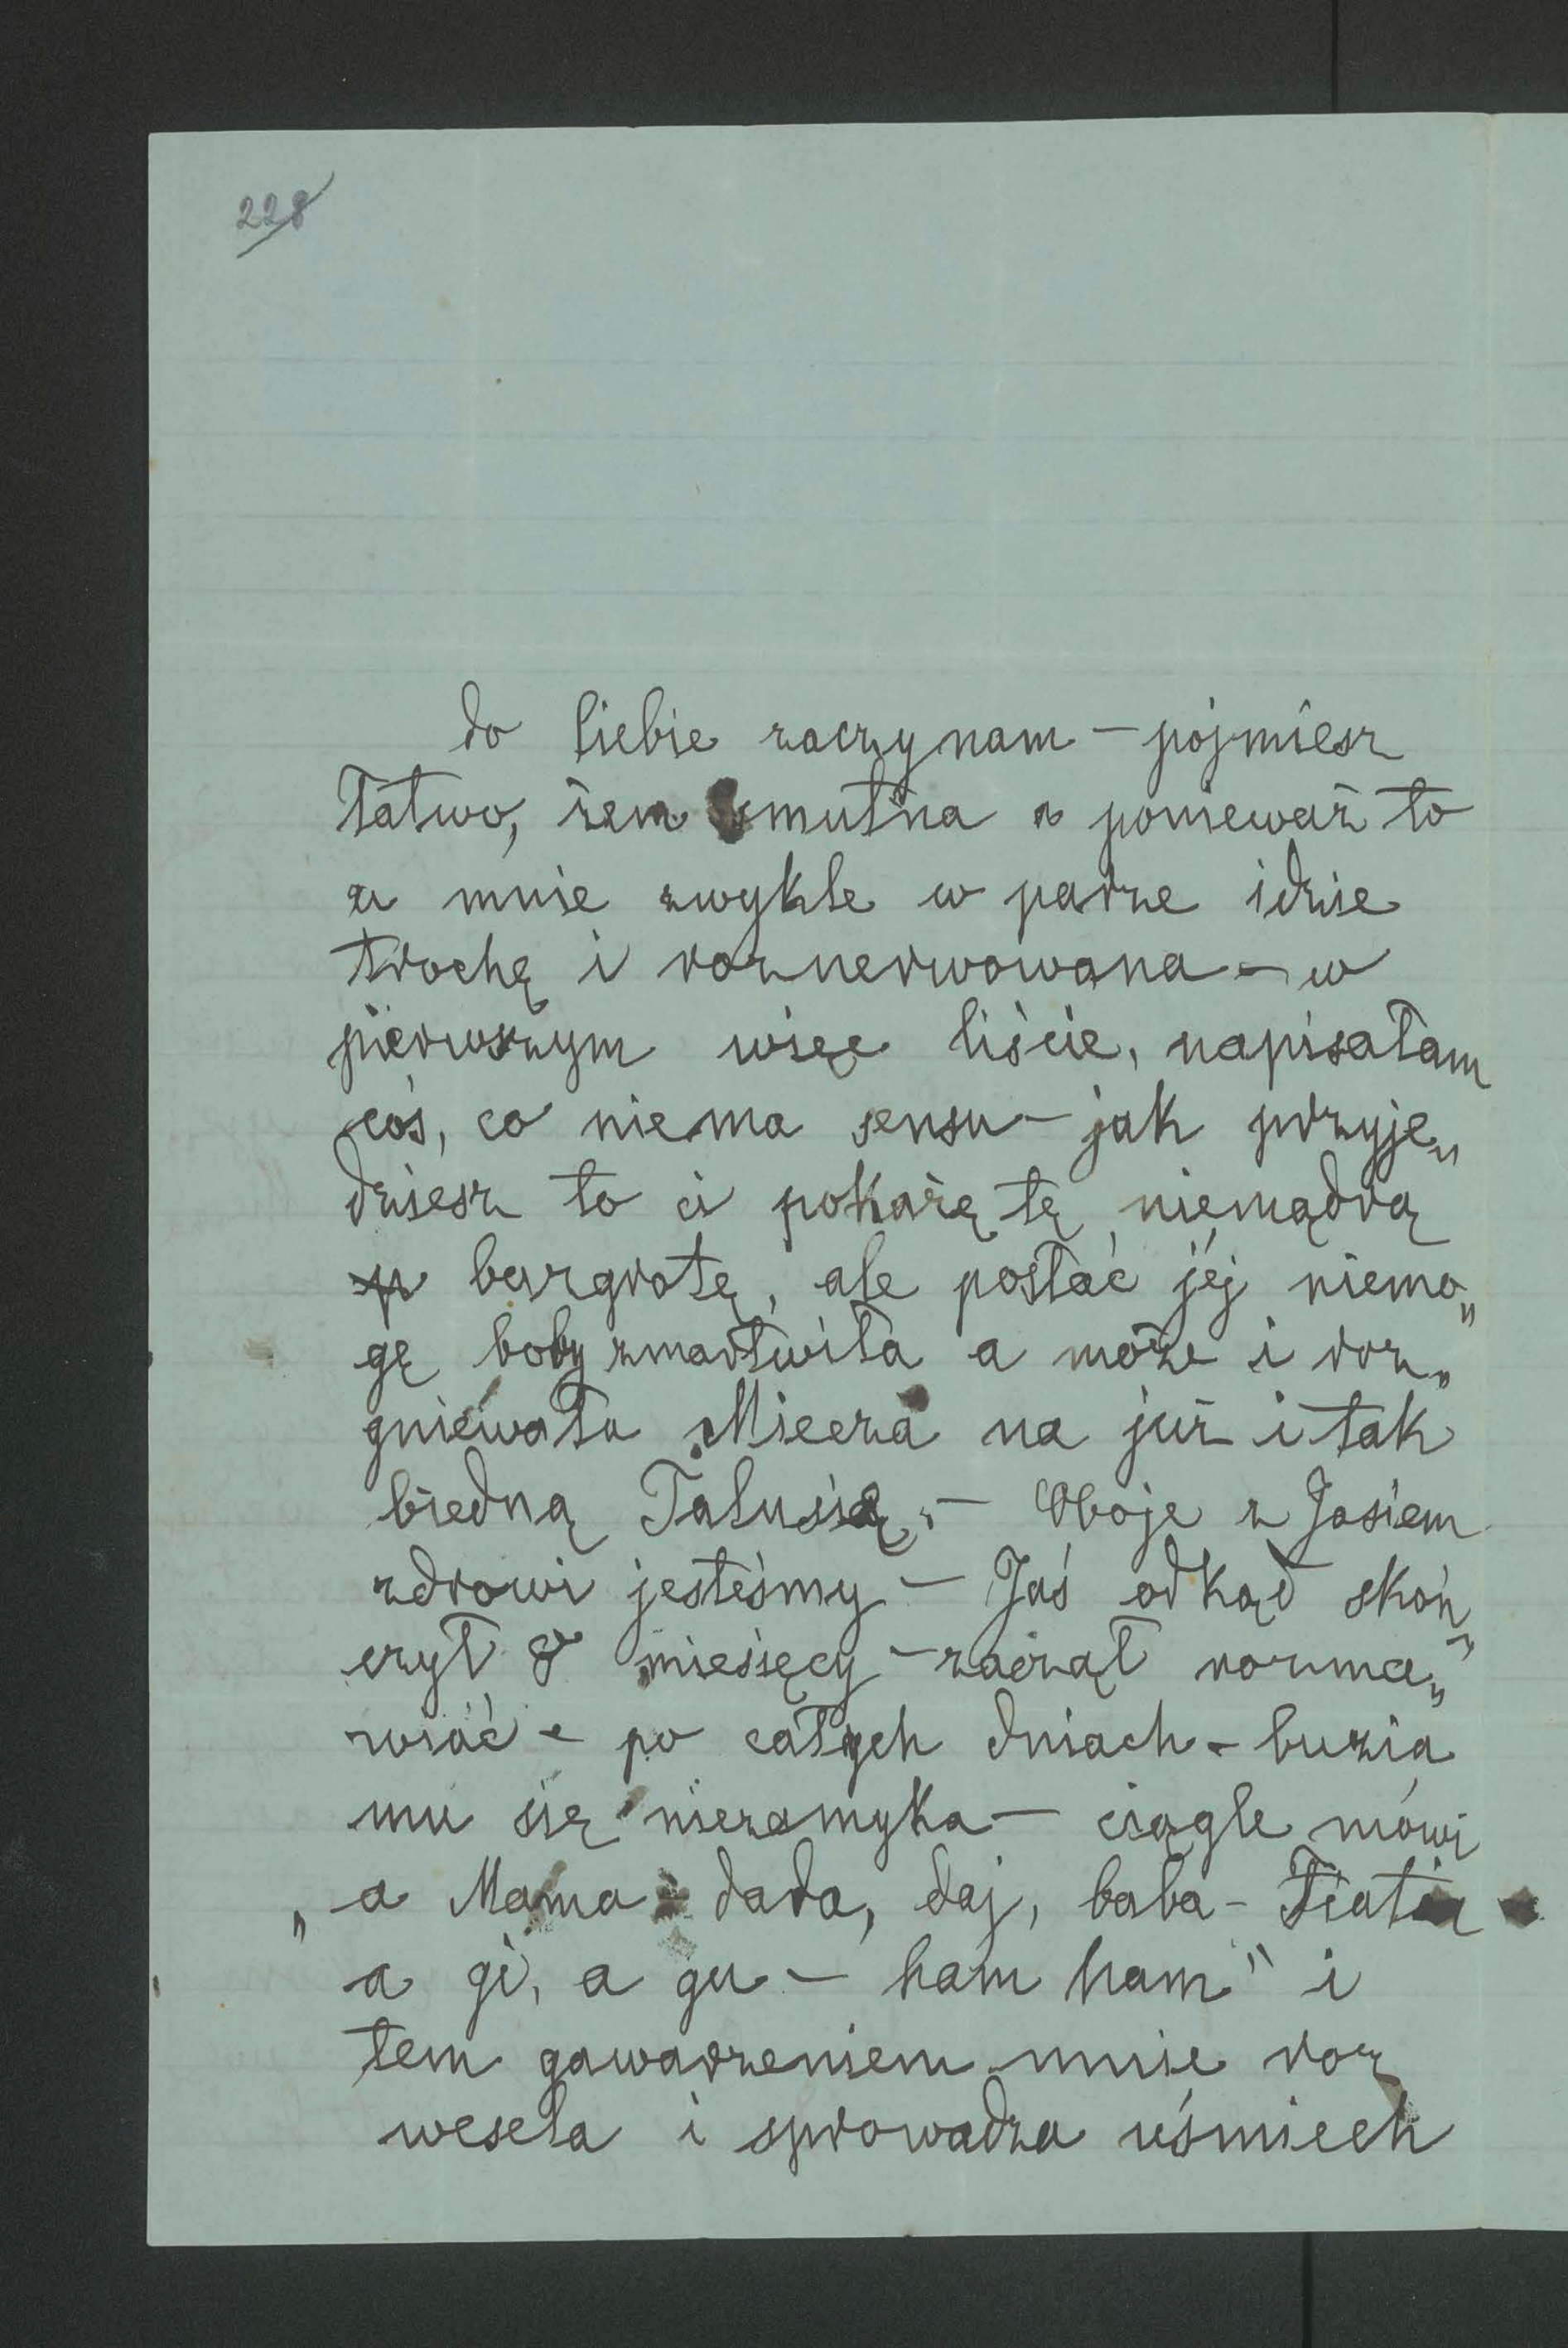 228
do Ciebie zaczynam – pójmiesz
łatwo, żem smutna a ponieważ to
u mnie zwykle w parze idzie
trochę i roznerwowana – w
pierwszym więc liście, napisałam
coś, co niema sensu – jak przyje„
dziesz to ci pokażę tę niemądrą
bazgrotę, ale posłać jej niemo„
gę boby zmartwiła a może i roz„
gniewała Miecza na już i tak
biedną Talusię. – Oboje z Jasiem
zdrowi jesteśmy – Jaś odkąd skoń„
czył 8 miesięcy – zaczął rozma„
wiać – po całych dniach – buzia
mu się niezamyka – ciągle mówi
„a Mama – dada, daj, baba –
a gi, a gu – ham ham" i
tem gaworzeniem mnie roz
wesela i sprowadza uśmiech